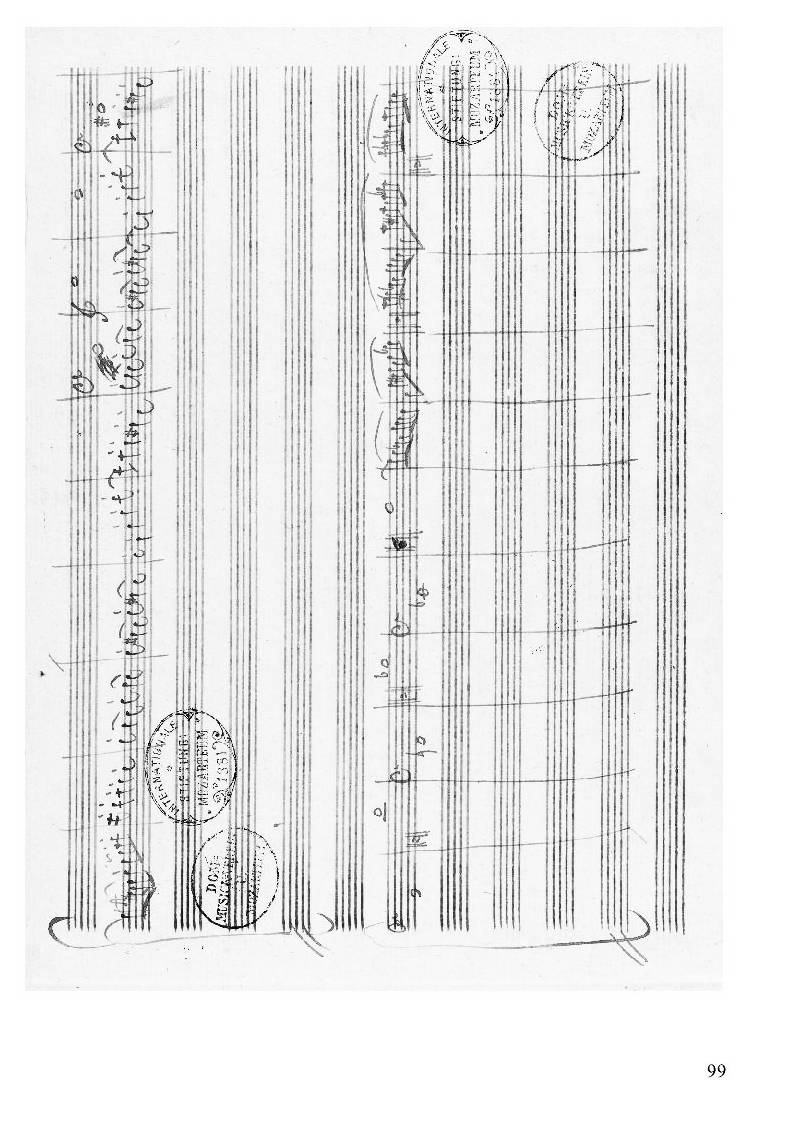 INTERNATIONALE
STIFTUNG:
MOZARTEUM
INTERNATIONALE
STIFTUNG:
MOZARTEUM
DOM=
MUSIKVEREIN
U.
MOZARTEUM
DOM=
MUSIKVEREIN
U.
MOZARTEUM
99